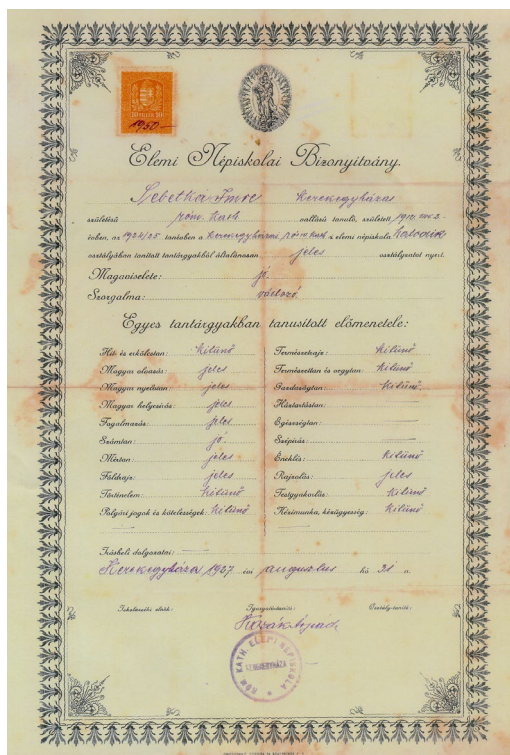 1950
Elemi Népiskolai Bizonyitvány.
Lebetka Imre kerekegyháza
születésü róm. kath vallású tanuló, született
évben, az 1924/25 tanévben a kerekegyházai róm. kath. elemi népiskola hatodik
osztályában tanitott tantárgyakból általánosan jeles osztályzatot nyert.
Magaviselete: jó.
Szorgalma: változó
Egyes tantárgyakban tanusitott előmenetele:
Hit- és erkölcstan: kitünő
Magyar olvasás: jeles
Magyar nyelvtan: jeles
Magyar helyesirás: jeles
Fogalmazás: jeles
Számtan: jó.
Mértan: jeles
Földrajz: jeles
Történelem: kitünő
Polgári jogok és kötelességek: kitünő
Természetrajz: kitünő
Természettan és vegytan: kitünő
Gazdaságtan: kitünő
Háztartástan:
Egészségtan:
Szépirás:
Éneklés: kitünő
Rajzolás: jeles
Testgyakorlás: kitünő
Kézimunka, kézügyesség: kitünő
Irásbeli dolgozatai:
Kerekegyháza, 1937 évi augusztus hó 31 n.
Iskolaszéki elnök: Igazgató-tanitó: Osztály-tanitó:
Kozák Árpád
RÓM. KATH. ELEMI NÉPISKOLA
KEREKEGYHÁZA